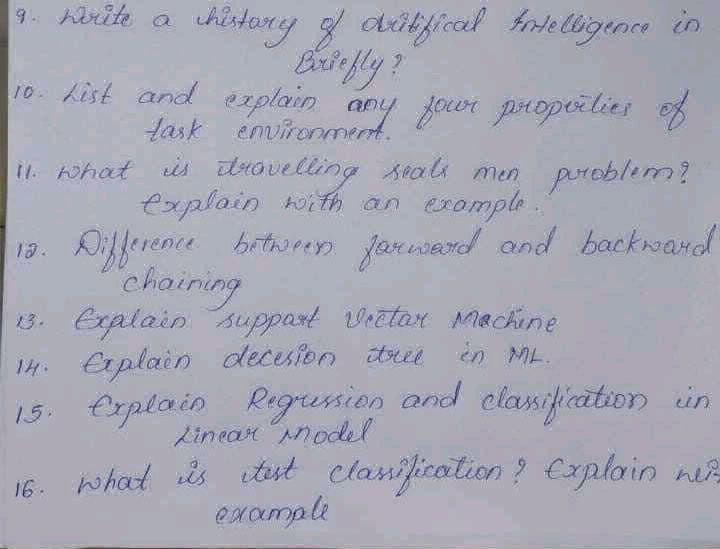 9. Write a history of Artifical Intelligence in
Briefly?
10. List and explain any four properties of
task environment.
11. what is travelling seals men problem?
Explain with an example.
12. Difference between farward and backward
chaining
13. Explain suppart Vectar Machine
14. Explain decesion tree in ML.
15. Explain Regression and classification in
Linear Model
16. what is test classification? Explain
example